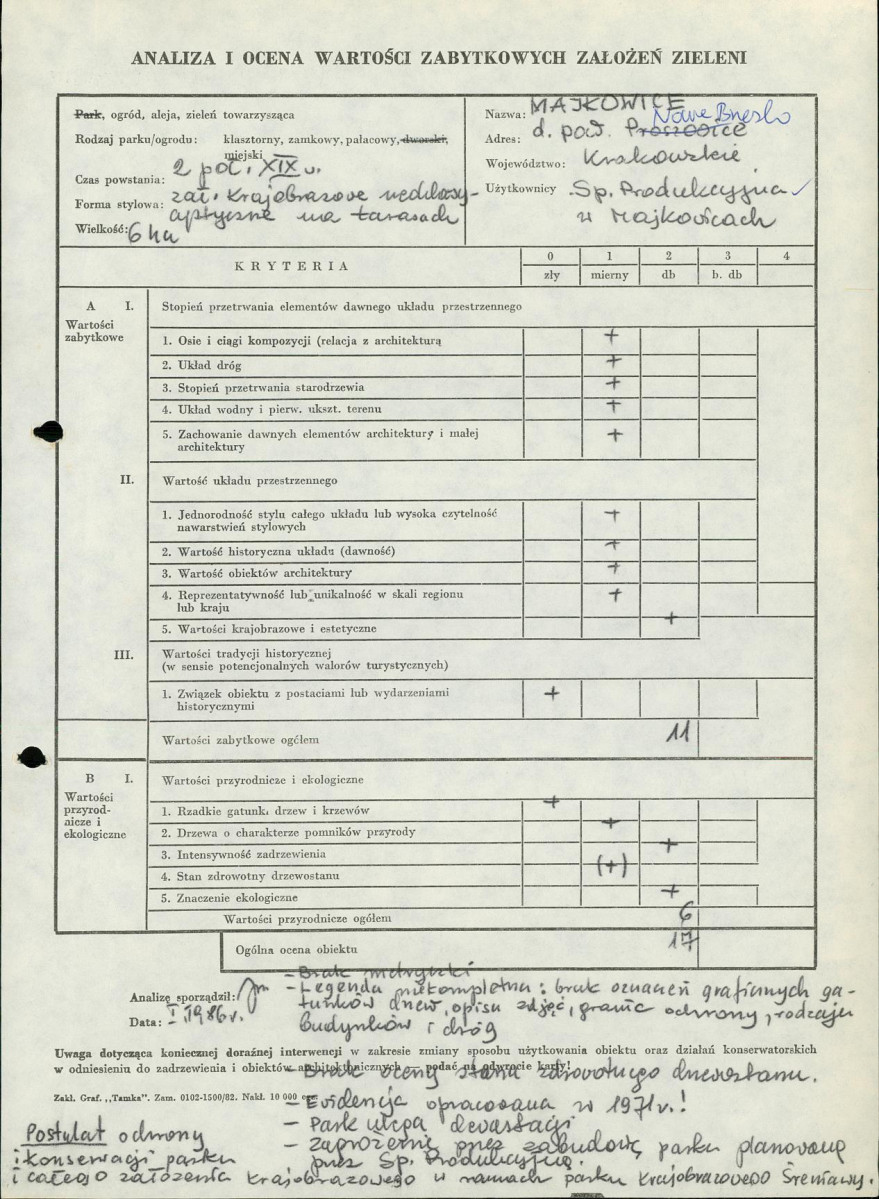 ANALIZA I OCENA WARTOŚCI ZABYTKOWYCH ZAŁOŻEŃ ZIELENI
Park, ogród, aleja, zieleń towarzysząca
Rodzaj parku/ogrodu: klasztorny, zamkowy, pałacowy, dworski,
miejski
Czas powstania: 2 poł. XIX w.
Forma stylowa: zał. krajobrazowe
na tarasach
Wielkość: 6 ha
Nazwa: MAJKOWICE
Nowe Brzesko
Adres: d. pow. Proszowice
Województwo: Krakowskie
Użytkownicy Sp. Produkcyjna
w Majkowicach
KRYTERIA
0 1 2 3 4
zły mierny db b. db
A I. Stopień przetrwania elementów dawnego układu przestrzennego
Wartości
zabytkowe
1. Osie i ciągi kompozycji (relacja z architekturą +
2. Układ dróg +
3. Stopień przetrwania starodrzewia +
4. Układ wodny i pierw. ukszt. terenu +
5. Zachowanie dawnych elementów architektury i małej
architektury +
II. Wartość układu przestrzennego
1. Jednorodność stylu całego układu lub wysoka czytelność
nawarstwień stylowych +
2. Wartość historyczna układu (dawność) +
3. Wartość obiektów architektury +
4. Reprezentatywność lub unikalność w skali regionu
lub kraju +
5. Wartości krajobrazowe i estetyczne +
III. Wartości tradycji historycznej
(w sensie potencjonalnych walorów turystycznych)
1. Związek obiektu z postaciami lub wydarzeniami
historycznymi +
Wartości zabytkowe ogółem 11
B I. Wartości przyrodnicze i ekologiczne
Wartości
przyrod-
nicze i
ekologiczne
1. Rzadkie gatunki drzew i krzewów +
2. Drzewa o charakterze pomników przyrody +
3. Intensywność zadrzewienia +
4. Stan zdrowotny drzewostanu (+)
5. Znaczenie ekologiczne +
Wartości przyrodnicze ogółem 6
Ogólna ocena obiektu 17
- Brak metryczki
Analizę sporządził: - Legenda niekompletna: brak oznaczeń graficznych ga-
tunków drzew, opisu zdjęć, granic ochrony, rodzaju
Data: I 1986 r. budynków i dróg
Uwaga dotycząca koniecznej doraźnej interwencji w zakresie zmiany sposobu użytkowania obiektu oraz działań konserwatorskich
w odniesieniu do zadrzewienia i obiektów architektonicznych — podać na odwrocie karty!
- Brak oceny stanu zdrowotnego drzewostanu.
Zakł. Graf. „Tamka". Zam. 0102-1500/82. Nakł. 10 000 egz.
- Ewidencja opracowana w 1971 r.!
- Park ulega dewastacji
- Zagrożenie przez zabudowę parku planowaną
przez Sp. Produkcyjną.
Postulat ochrony
i konserwacji parku
i całego założenia krajobrazowego w ramach parku Krajobrazowego Śreniawy.